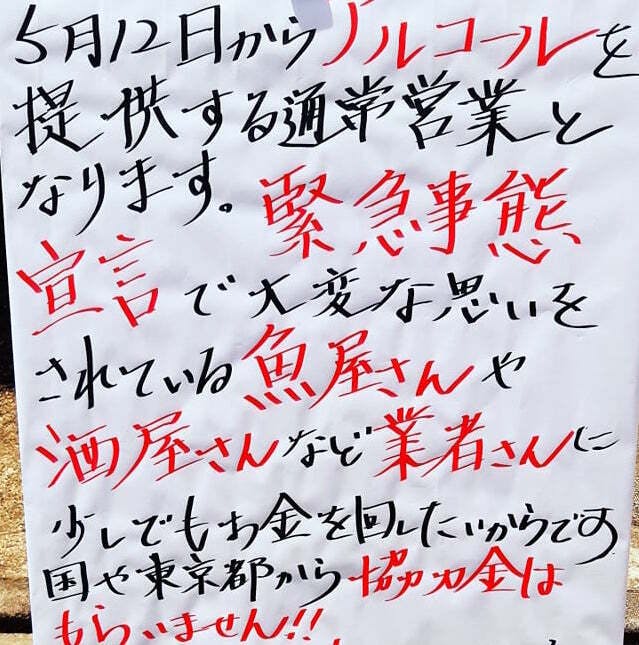 5月12日からアルコールを
提供する通常営業と
なります。緊急事態
宣言で大変な思いを
されている魚屋さんや
酒屋さんなど業者さんに
少しでもお金を回したいからです
国や東京都から協力金は
もらいません!!